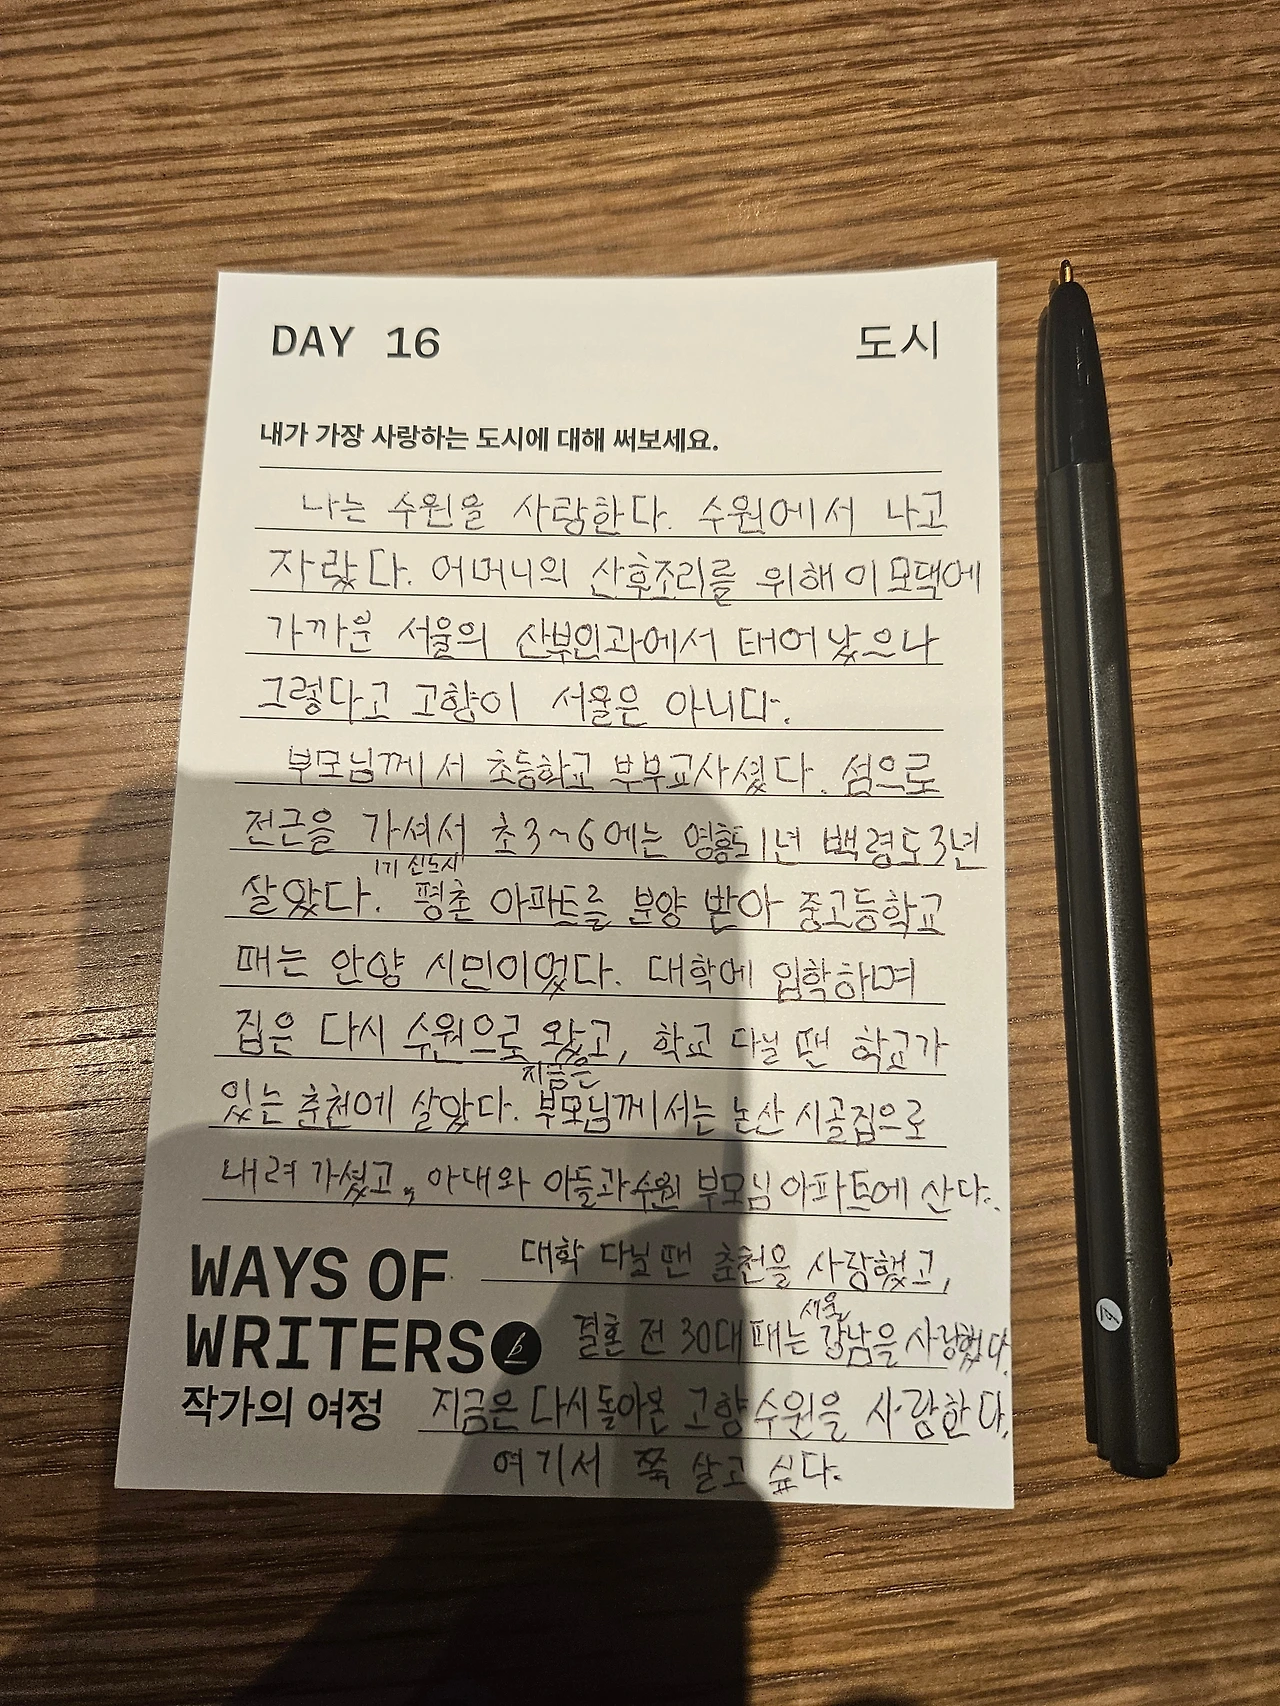 DAY 16
도시
내가 가장 사랑하는 도시에 대해 써보세요.
나는 수원을 사랑한다. 수원에서 나고
자랐다. 어머니의 산후조리를 위해 이모댁에
가까운 서울의 산부인과에서 태어났으나
그렇다고 고향이 서울은 아니다.
부모님께서 초등학교 부부교사셨다. 섬으로
전근을 가셔서 초3~6에는 영흥도1년 백령도3년
1기 신도시
살았다. 평촌 아파트를 분양 받아 중고등학교
때는 안양 시민이었다. 대학에 입학하며
집은 다시 수원으로 왔고, 학교 다닐 땐 학교가
지금은
있는 춘천에 살았다. 부모님께서는 논산 시골집으로
내려가셨고, 아내와 아들과 수원 부모님 아파트에 산다.
대학 다닐 땐 춘천을 사랑했고,
서울
결혼 전 30대 때는 강남을 사랑했다.
지금은 다시 돌아온 고향 수원을 사랑한다.
여기서 쭉 살고 싶다.
WAYS OF
WRITERS
작가의 여정